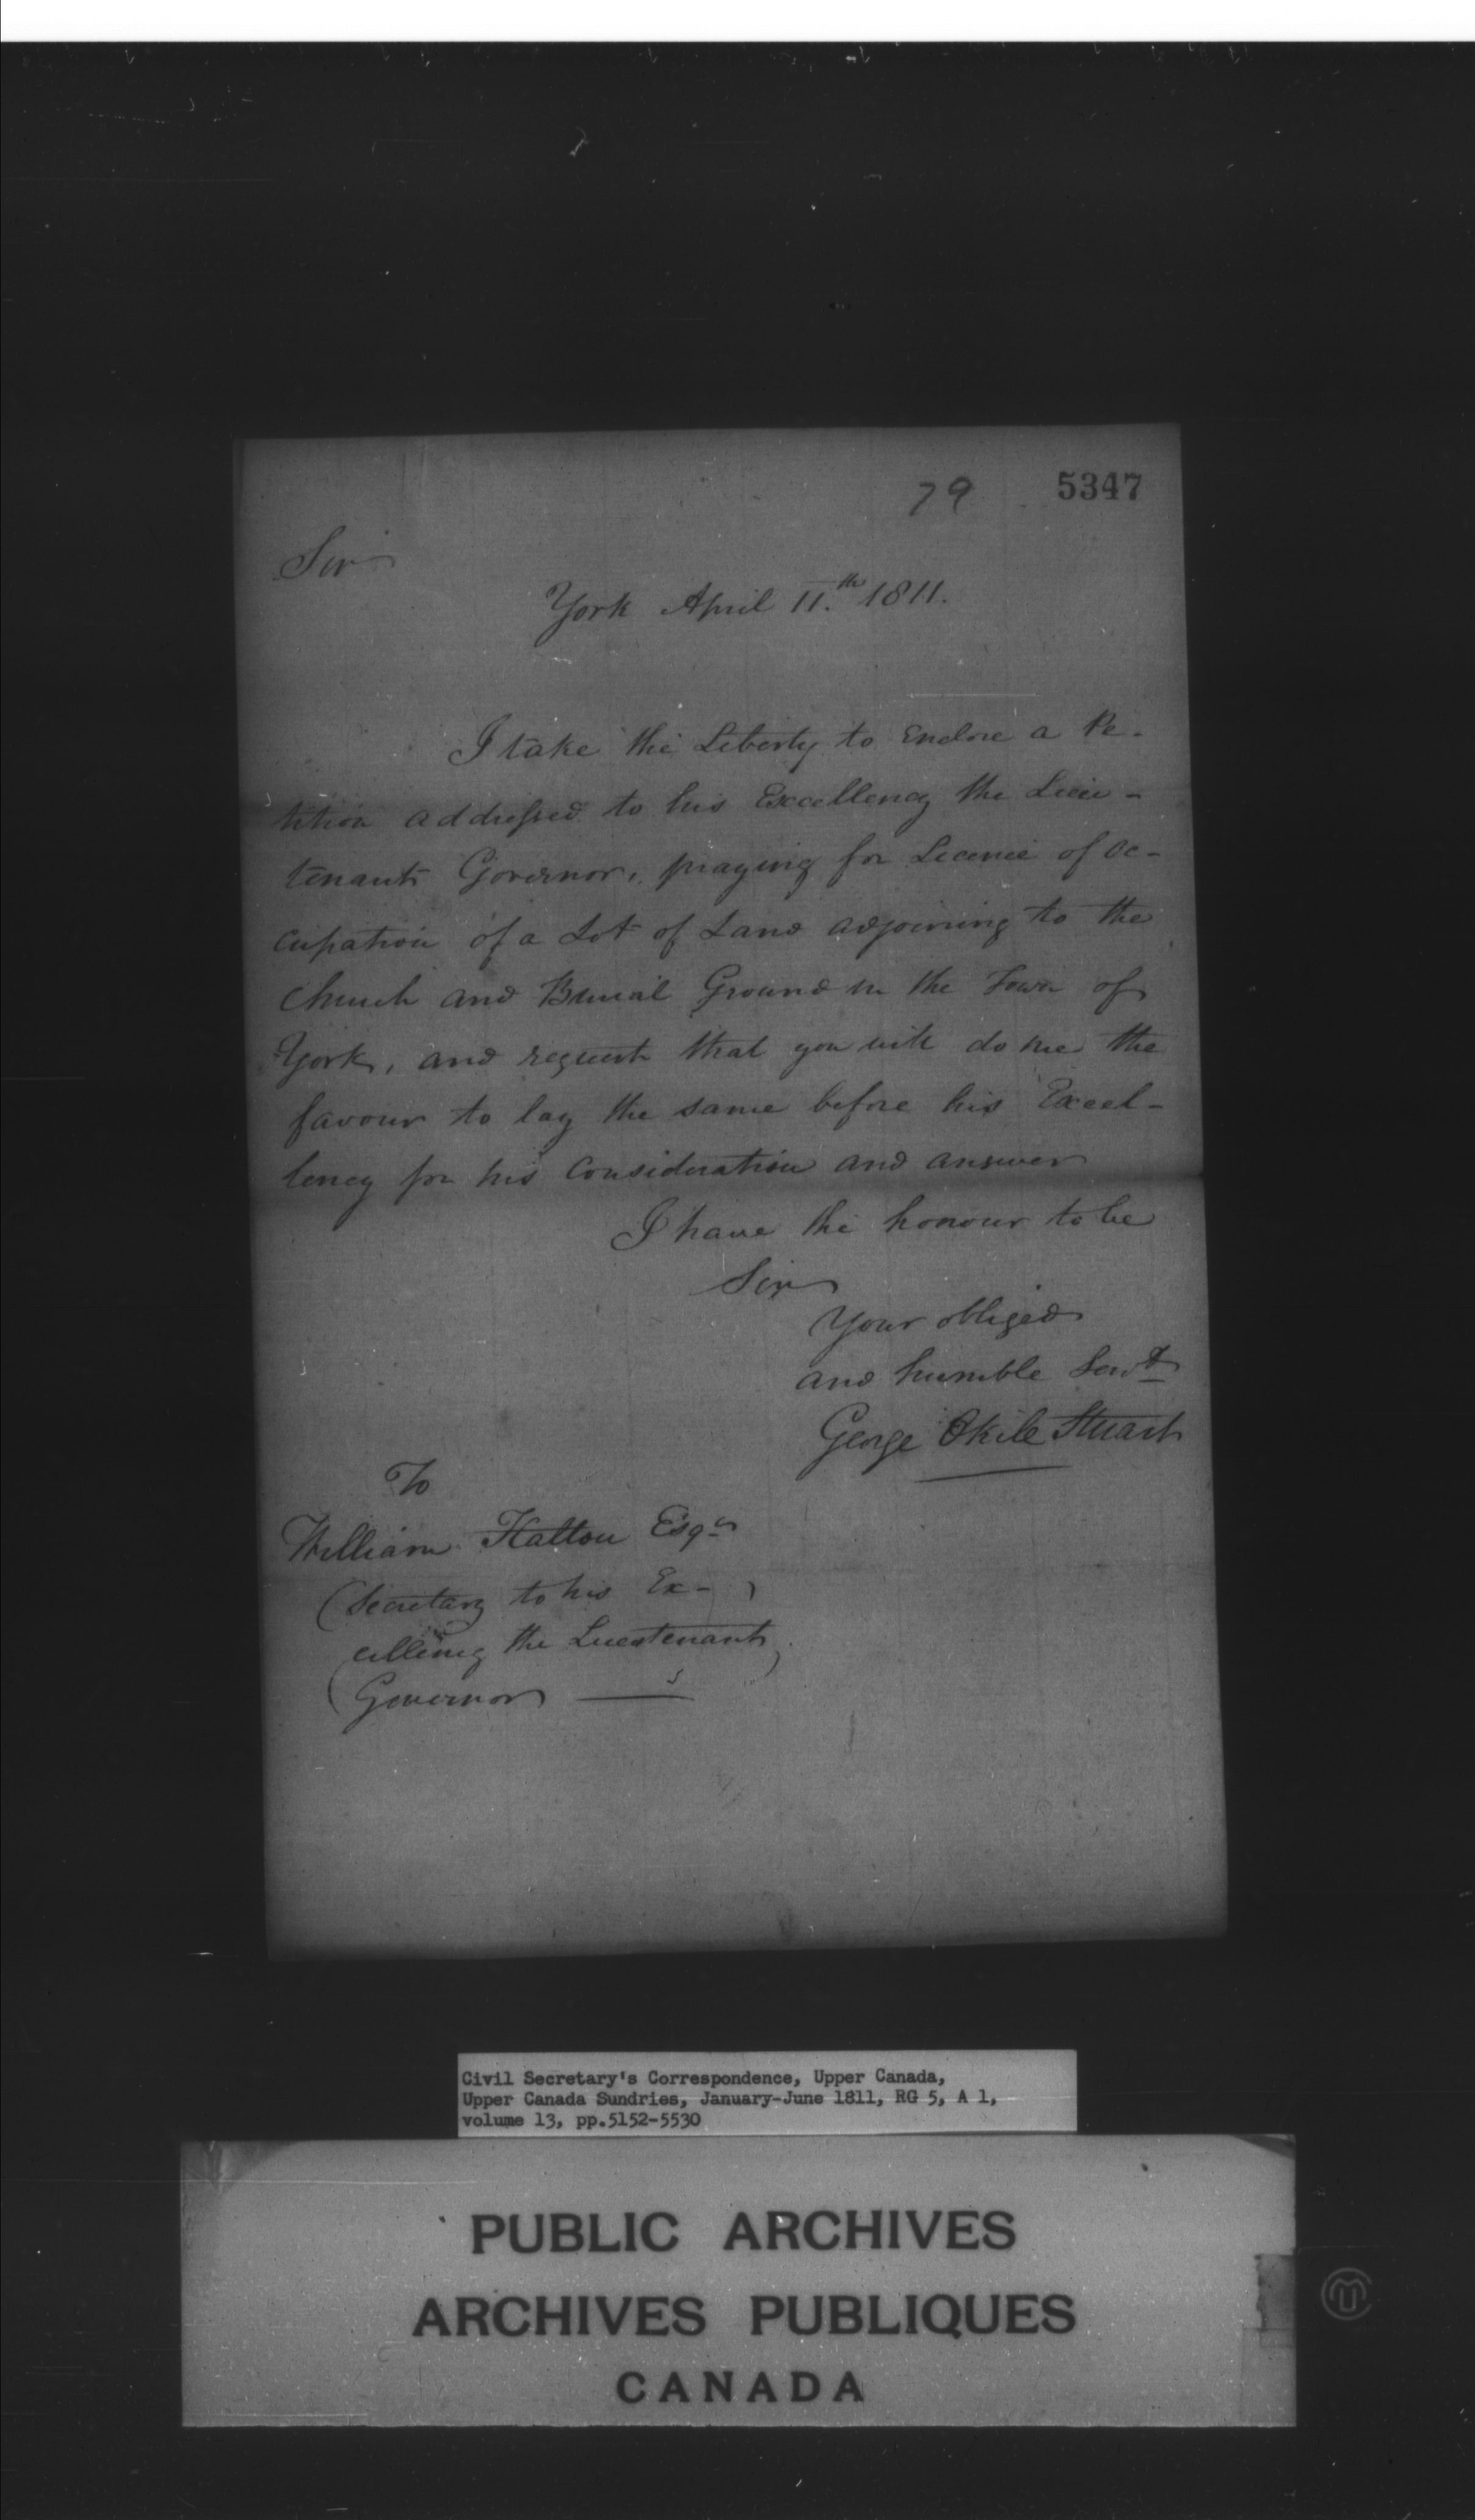 79 5347
Sir
York April 11.th 1811.
I take the Liberty to enclose a Pe-
tition addressed to his Excellency the Lieu-
tenant Governor, praying for Licence of oc-
cupation of a Lot of Land adjoining to the
Church and Burial Ground in the Town of
York, and request that you will do me the
favour to lay the same before his Excel-
lency for his Consideration and answer
I have the honour to be
Sir
Your obliged
and humble Servt
George Okile Stuart
To
William Halton Esqr
(Secretary to his Ex-)
cellency the Lieutenant
Governor
Civil Secretary's Correspondence, Upper Canada,
Upper Canada Sundries, January-June 1811, RG 5, A 1,
volume 13, pp.5152-5530
PUBLIC ARCHIVES
ARCHIVES PUBLIQUES
CANADA